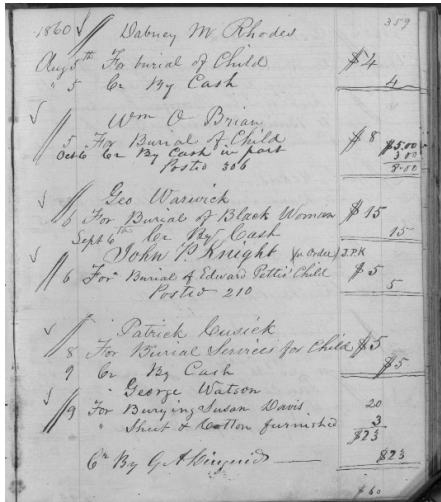 359
1860 Dabney M Rhodes
Aug 5th For burial of Child $4
" 5 Cr By Cash 4
Wm O Brian
5 For Burial of Child $8 $5.00
Oct 6 Cr By Cash in part 3 00
Posted 306 8.00
Geo Warwick
6 For Burial of Black Woman $15
Sept 6th Cr By Cash 15
John P. Knight (pr Order) J.P.K
6 For Burial of Edward Pettis' Child $5
Posted 210 5
Patrick Cusick
8 For Burial Services for Child $5
9 Cr By Cash $5
George Watson
9 For Burying Susan Davis 20
" Sheet & Cotton furnished 3
$23
Cr By G A Diuguid $23
$60